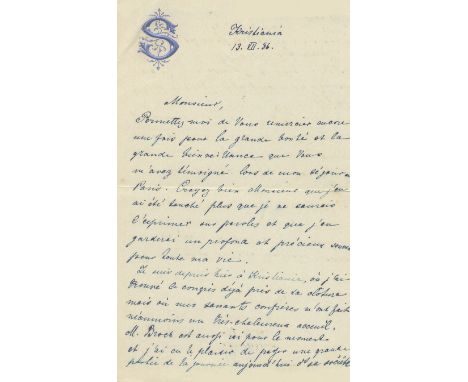 S
Kristiania
13. VII. 86.
Monsieur,
Permettez moi de Vous remercier encore
une fois pour la grande bonté et la
grande bienveillance que Vous
m'avez témoigné lors de mon séjour à
Paris. Croyez bien Monsieur que j'en
ai été touché plus que je ne saurais
l'exprimer en paroles et que j'en
garderai un profond et précieux
pour toute ma vie.
Je suis depuis hier à Kristiania, où j'ai
trouvé le congrès déjà près de la clôture
mais où mes savants confrères m'ont fait
néanmoins un très-chaleureux accueil.
M. Broch est aussi ici pour le moment
et j'ai eu le plaisir de passer une grande
partie de la journée aujourd'hui en sa société